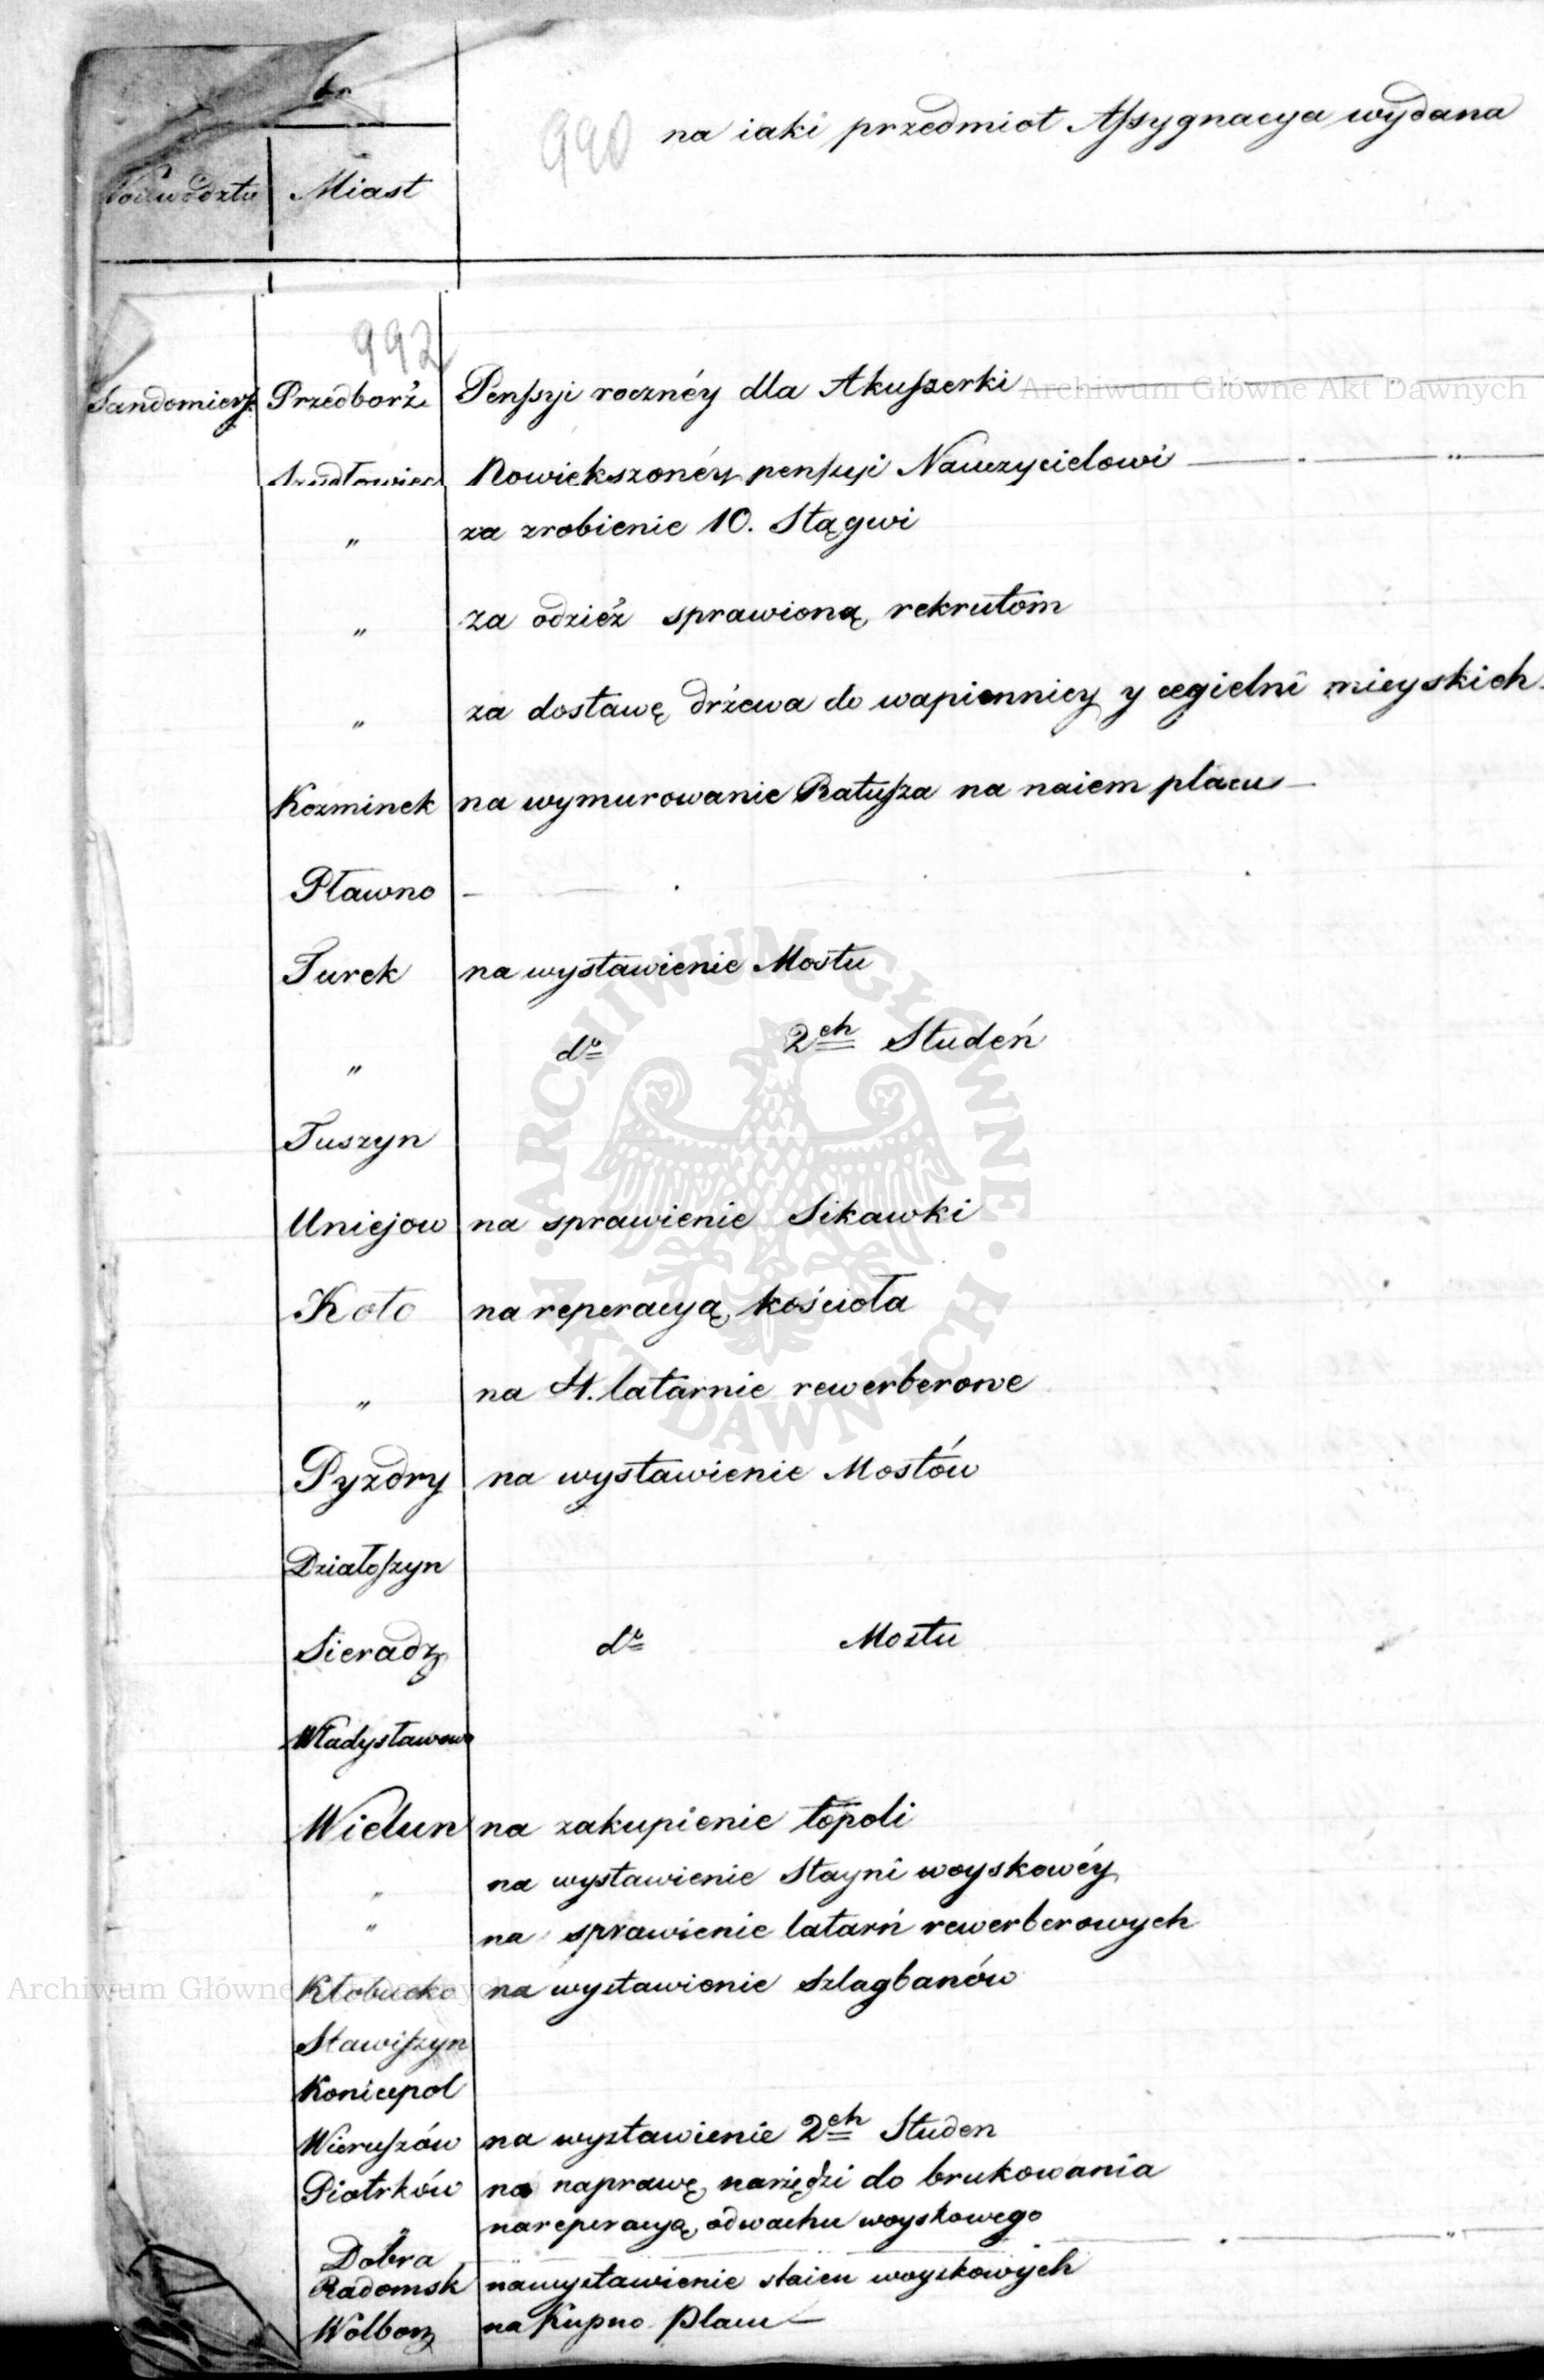 990 na iaki przedmiot Assygnacya wydana
Miast
992
Sandomiers. Przedborż Penssyi rocznéy dla Akuszerki
Archiwum Główne Akt Dawnych
Szydłowiec Powiększonéy penssyi Nauczycielowi
" za zrobienie 10. Stągwi
" za odzież sprawioną rekrutom
" za dostawę drzewa do wapiennicy y cegielni mieyskich
Kozminek na wymurowanie Ratusza na naiem placu
Pławno
Turek na wystawienie Mostu
" do 2ch Studeń
Tuszyn
Uniejow na sprawienie Sikawki
Koło na reperacyą kościoła
" na 4. latarnie rewerberowe
Pyzdry na wystawienie Mostów
Działoszyn
Sieradz do Mostu
Władysławow
Wielun na zakupienie topoli
" na wystawienie Stayni woyskowéy
" na sprawienie latarń rewerberowych
Kłobucko na wystawienie Szlagbanów
Archiwum Główne Akt Dawnych
Stawiszyn
Koniecpol
Wieruszów na wystawienie 2ch Studen
Piotrków na naprawę narzędzi do brukowania
" na reperacyą odwachu woyskowego
Dobra
Radomsk na wystawienie staien woyskowych
Wolborz na Kupno Placu
· ARCHIWUM GŁÓWNE · AKT DAWNYCH